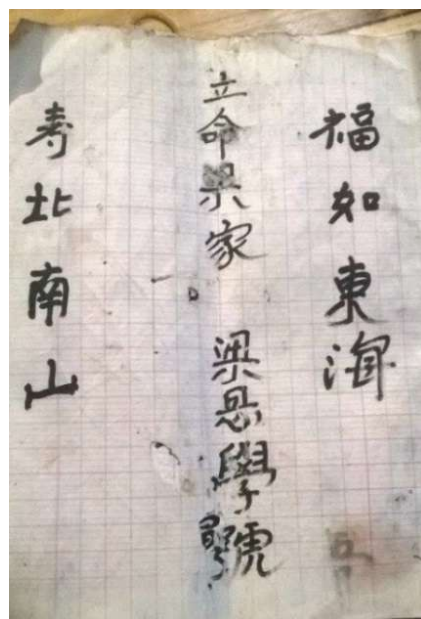 福如東海
立命梁家 梁恩學號
寿北南山